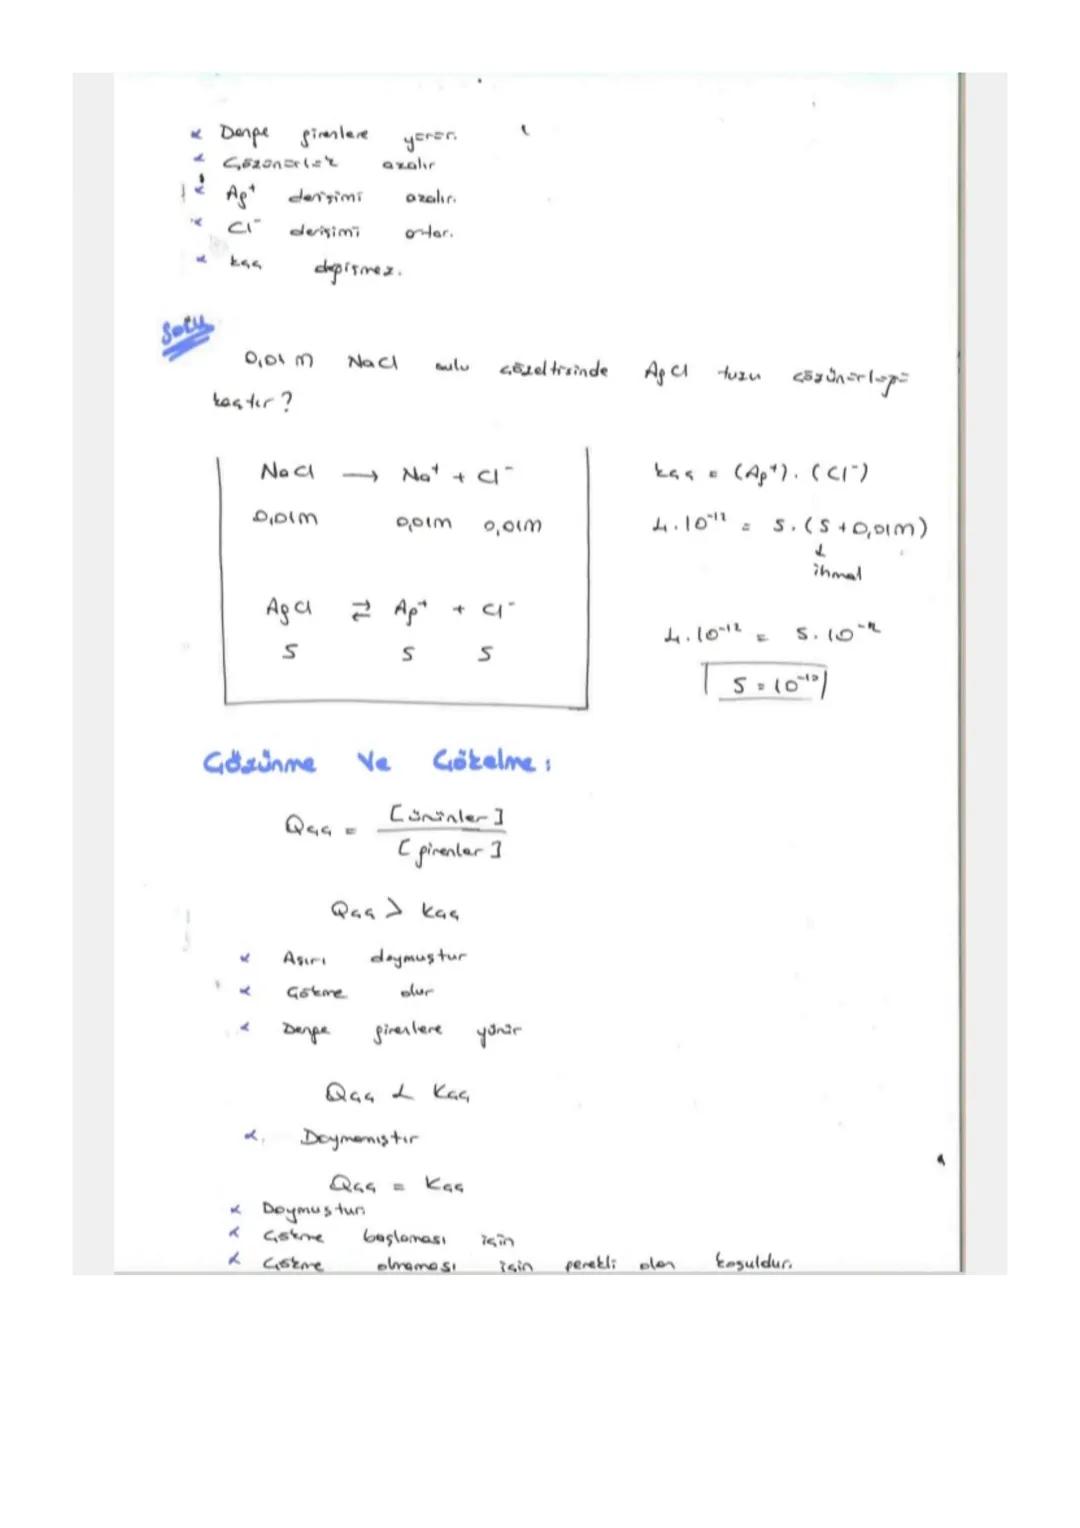 Denge girenlere yürür.
Çözünürlük azalır
Ag⁺ derişimi azalır.
Cl⁻ derişimi artar.
kçç değişmez.
Soru
0,01 M NaCl sulu çözeltisinde AgCl tuzu çözünürlüğü
kaçtır?
NaCl → Na⁺ + Cl⁻
0,01M 0,01M 0,01M
AgCl ⇄ Ag⁺ + Cl⁻
S S S
kçç = (Ag⁺).(Cl⁻)
4.10⁻¹² = S.(S+0,01M)
↓
ihmal
4.10⁻¹² = S.10⁻²
S = 10⁻¹⁰
Çözünme Ve Çökelme:
Qçç = [ürünler]
[girenler]
Qçç > Kçç
Aşırı doymuştur
Çökme olur
Denge girenlere yürür
Qçç < Kçç
Doymamıştır
Qçç = Kçç
Doymuştur
Çökme başlaması için
Çökme olmaması için gerekli olan koşuldur.